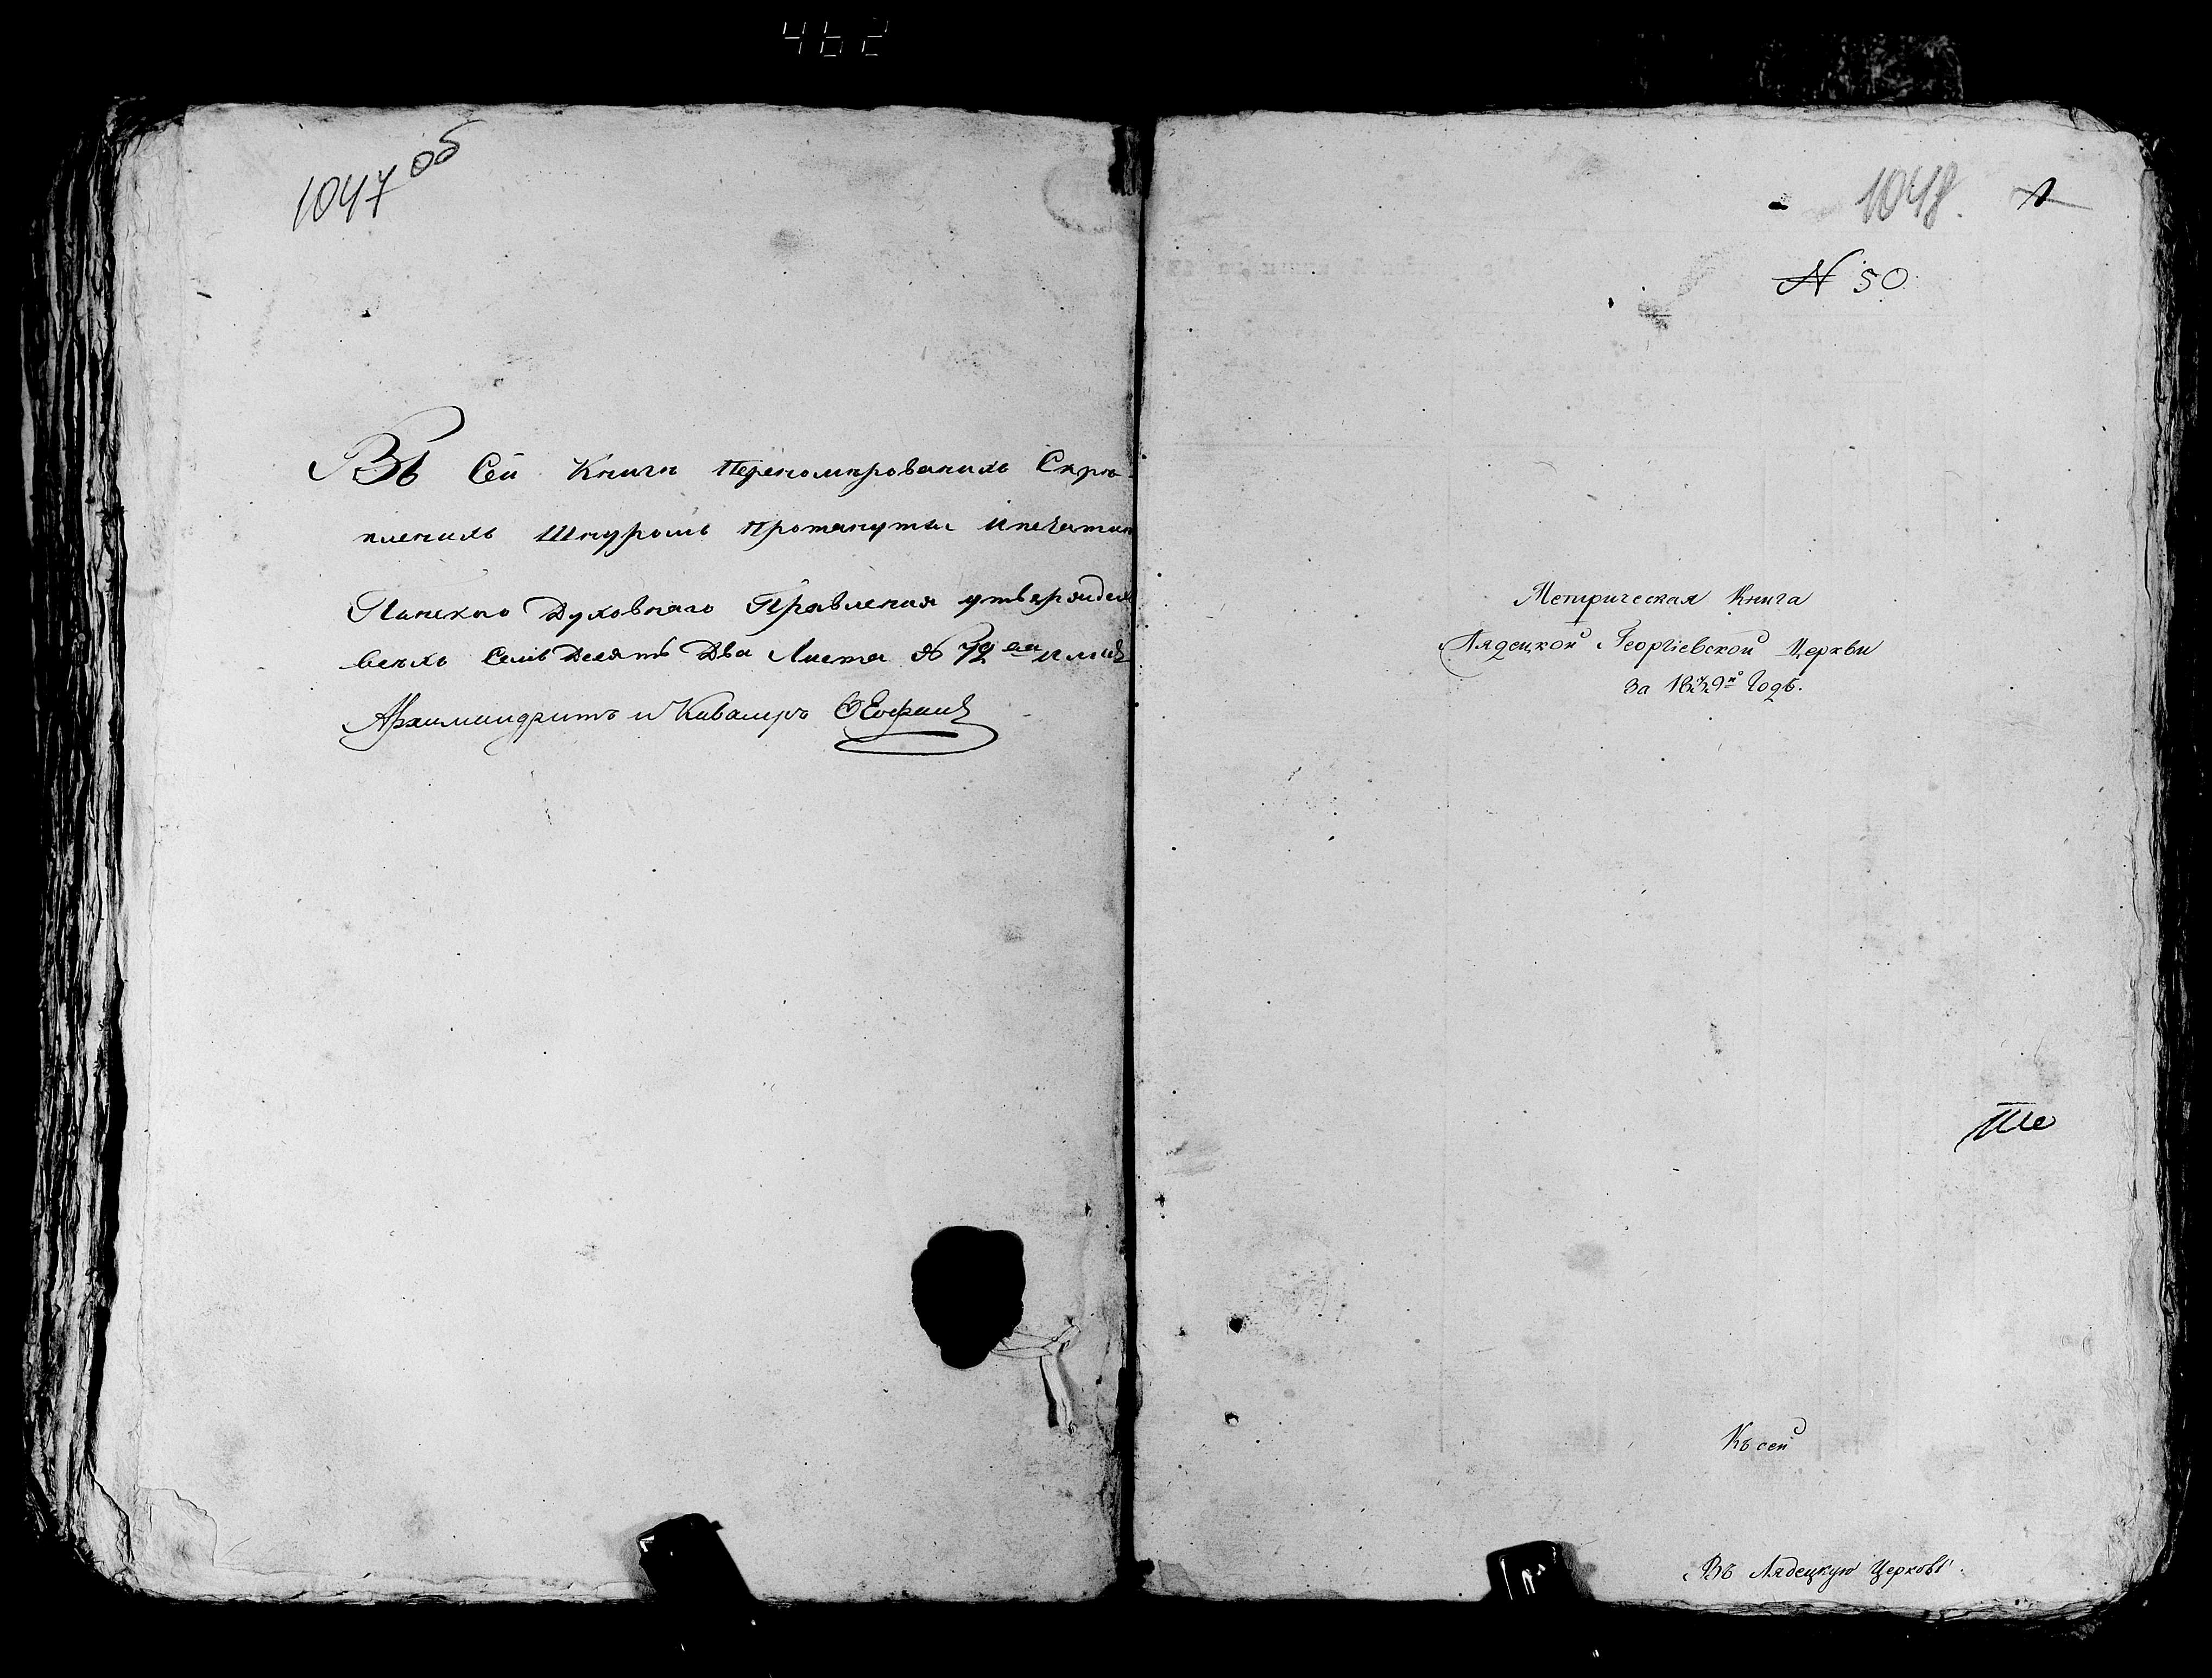 462
1047 об
Въ Сей Книги Переномированихъ Скрѣ-
пленихъ Шнуромъ Протянуты и печатию
Пинскаго Духовнаго Правления утверждена
всехъ Семь Десятъ Два Листа № 72
Архимандритъ и Кавалеръ
1048. 1
№ 50
Метрическая Книга
Лядецкой Георгіевской Церкви
За 1839й Годъ.
Ше
Къ сей
Въ Лядецкую Церковь.